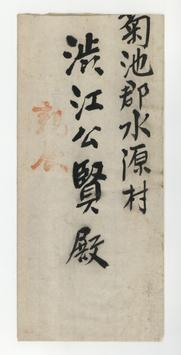 菊池郡水源村
渋江公賢殿
親展